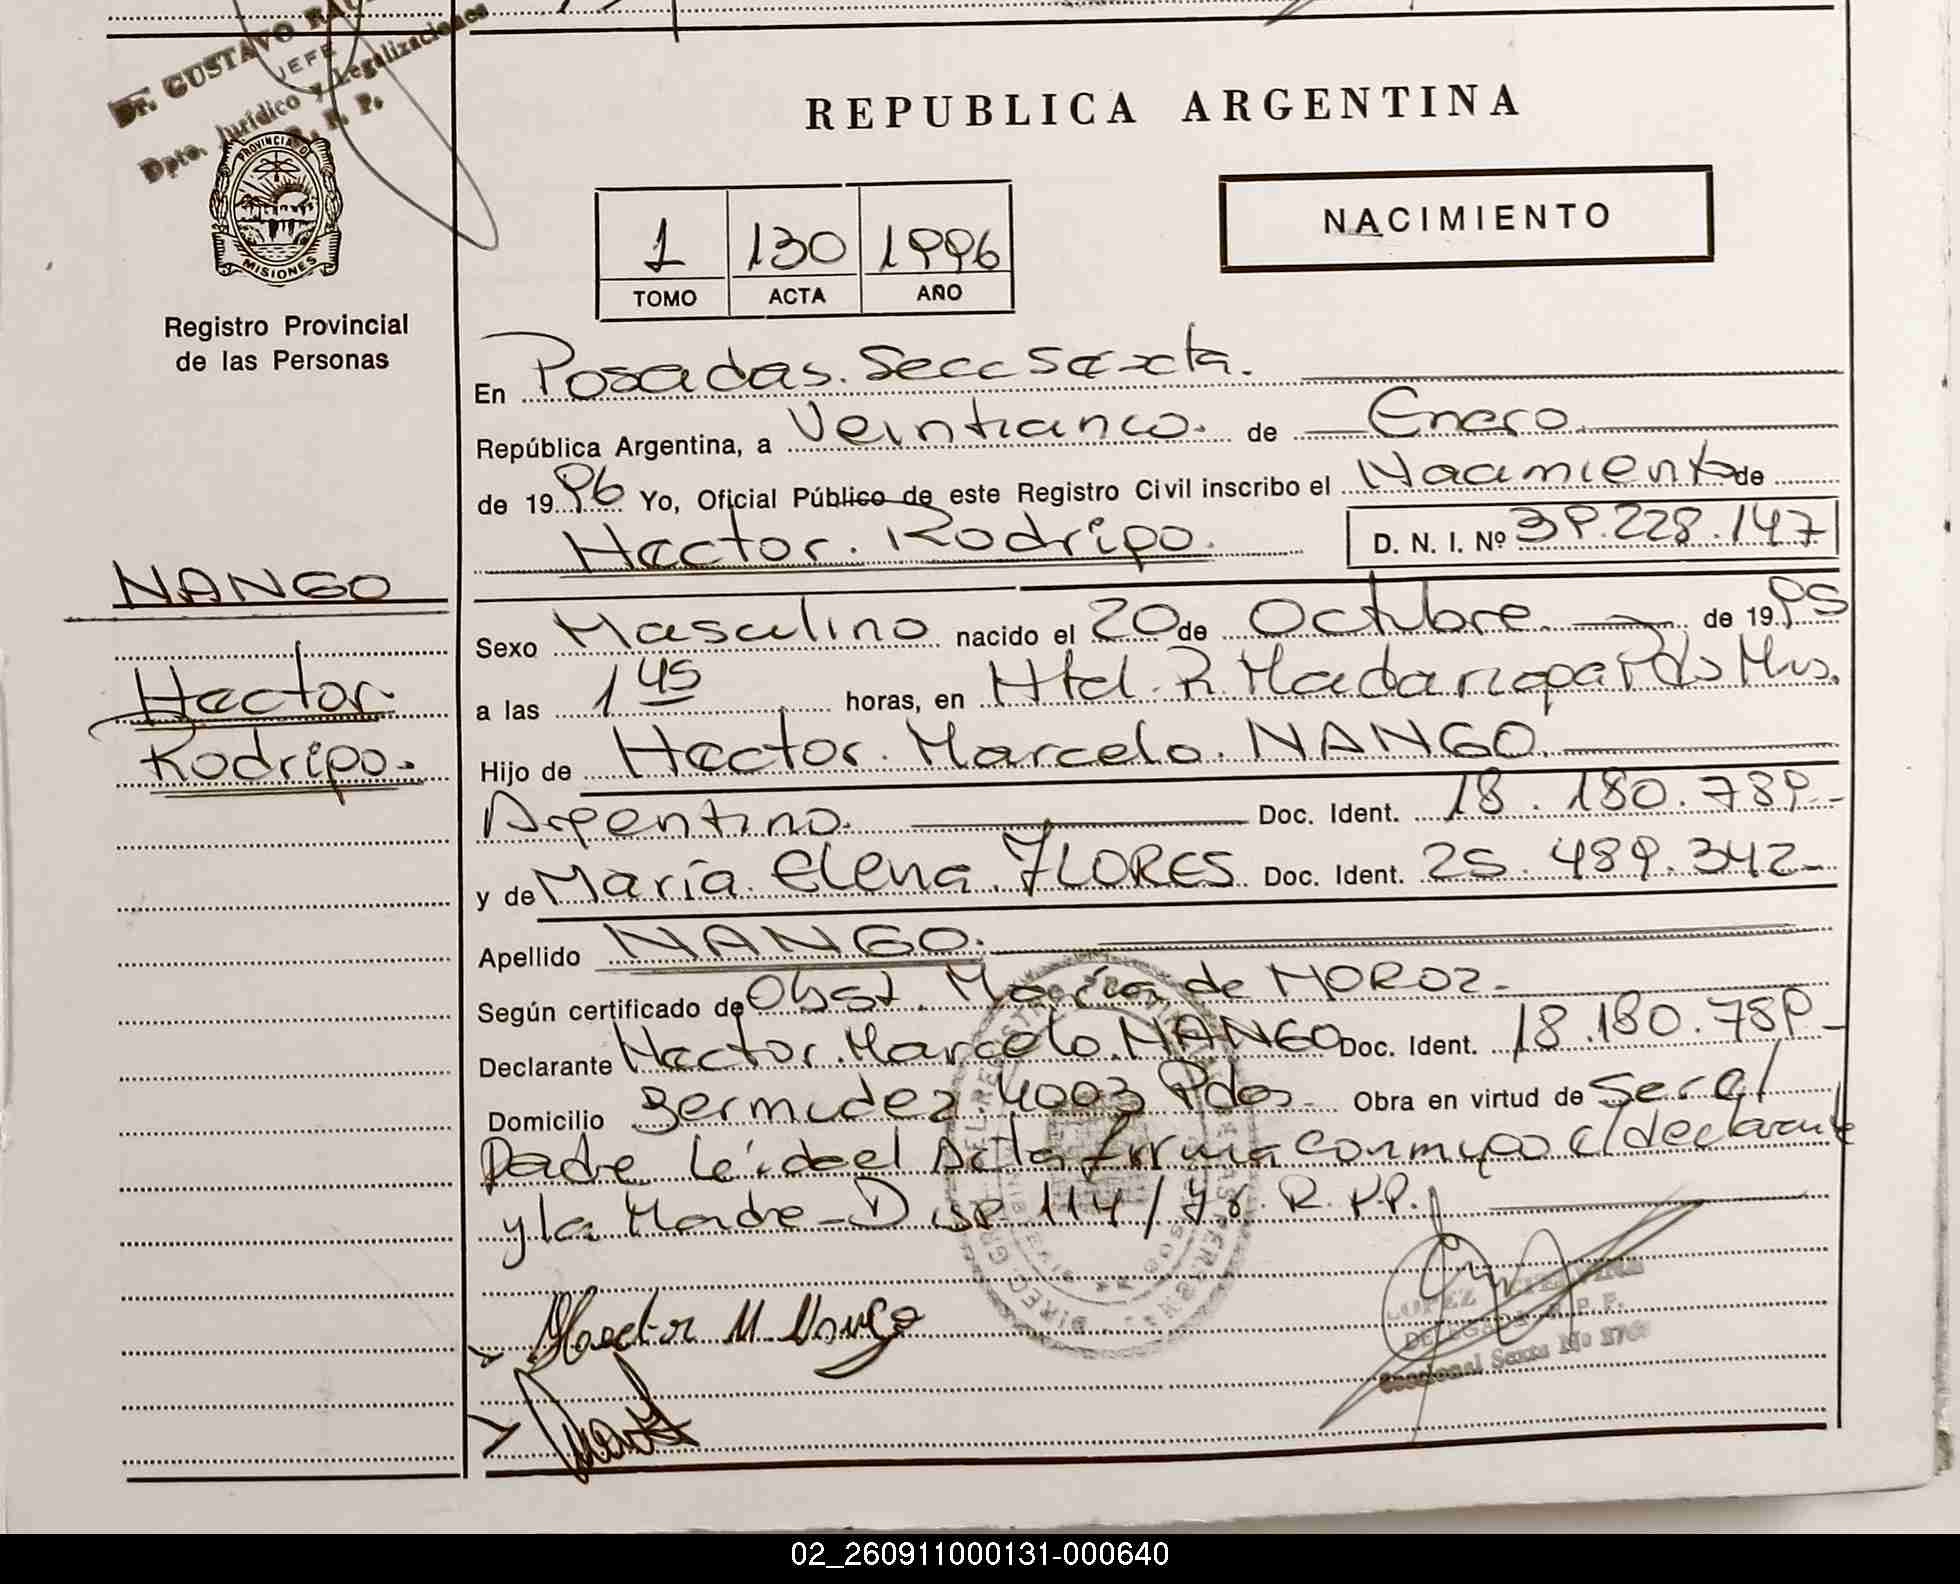 Dr. GUSTAVO
JEFE
Dpto. Jurídico y Legalizaciones
R. P. P.
PROVINCIA DE
MISIONES
Registro Provincial
de las Personas
REPUBLICA ARGENTINA
1 130 1996
TOMO ACTA AÑO
NACIMIENTO
En Posadas. Secc Sexta.
República Argentina, a Veinticinco. de Enero
de 1996 Yo, Oficial Público de este Registro Civil inscribo el Nacimiento de
Hector. Rodrigo. D. N. I. Nº 39.228.147
NANGO
Hector
Rodrigo.
Sexo Masculino nacido el 20 de Octubre de 1995
a las 1 45 horas, en Htal. R. Madariaga Pdas Mns.
Hijo de Hector. Marcelo. NANGO
Argentino. Doc. Ident. 18.180.789-
y de María. Elena. FLORES Doc. Ident. 25.489.342-
Apellido NANGO.
Según certificado de Obst. María de MOROZ-
Declarante Hector. Marcelo. NANGO Doc. Ident. 18.180.789-
Domicilio Bermudez. 4003 Pdas- Obra en virtud de ser el
Padre Leída el Acta firma conmigo el declarante
y la Madre-Disp. 114/78. R.P.P.
Hector M. Nango
LOPEZ
DELEGADA R. P. P.
Seccional Sexta Nº
02_260911000131-000640